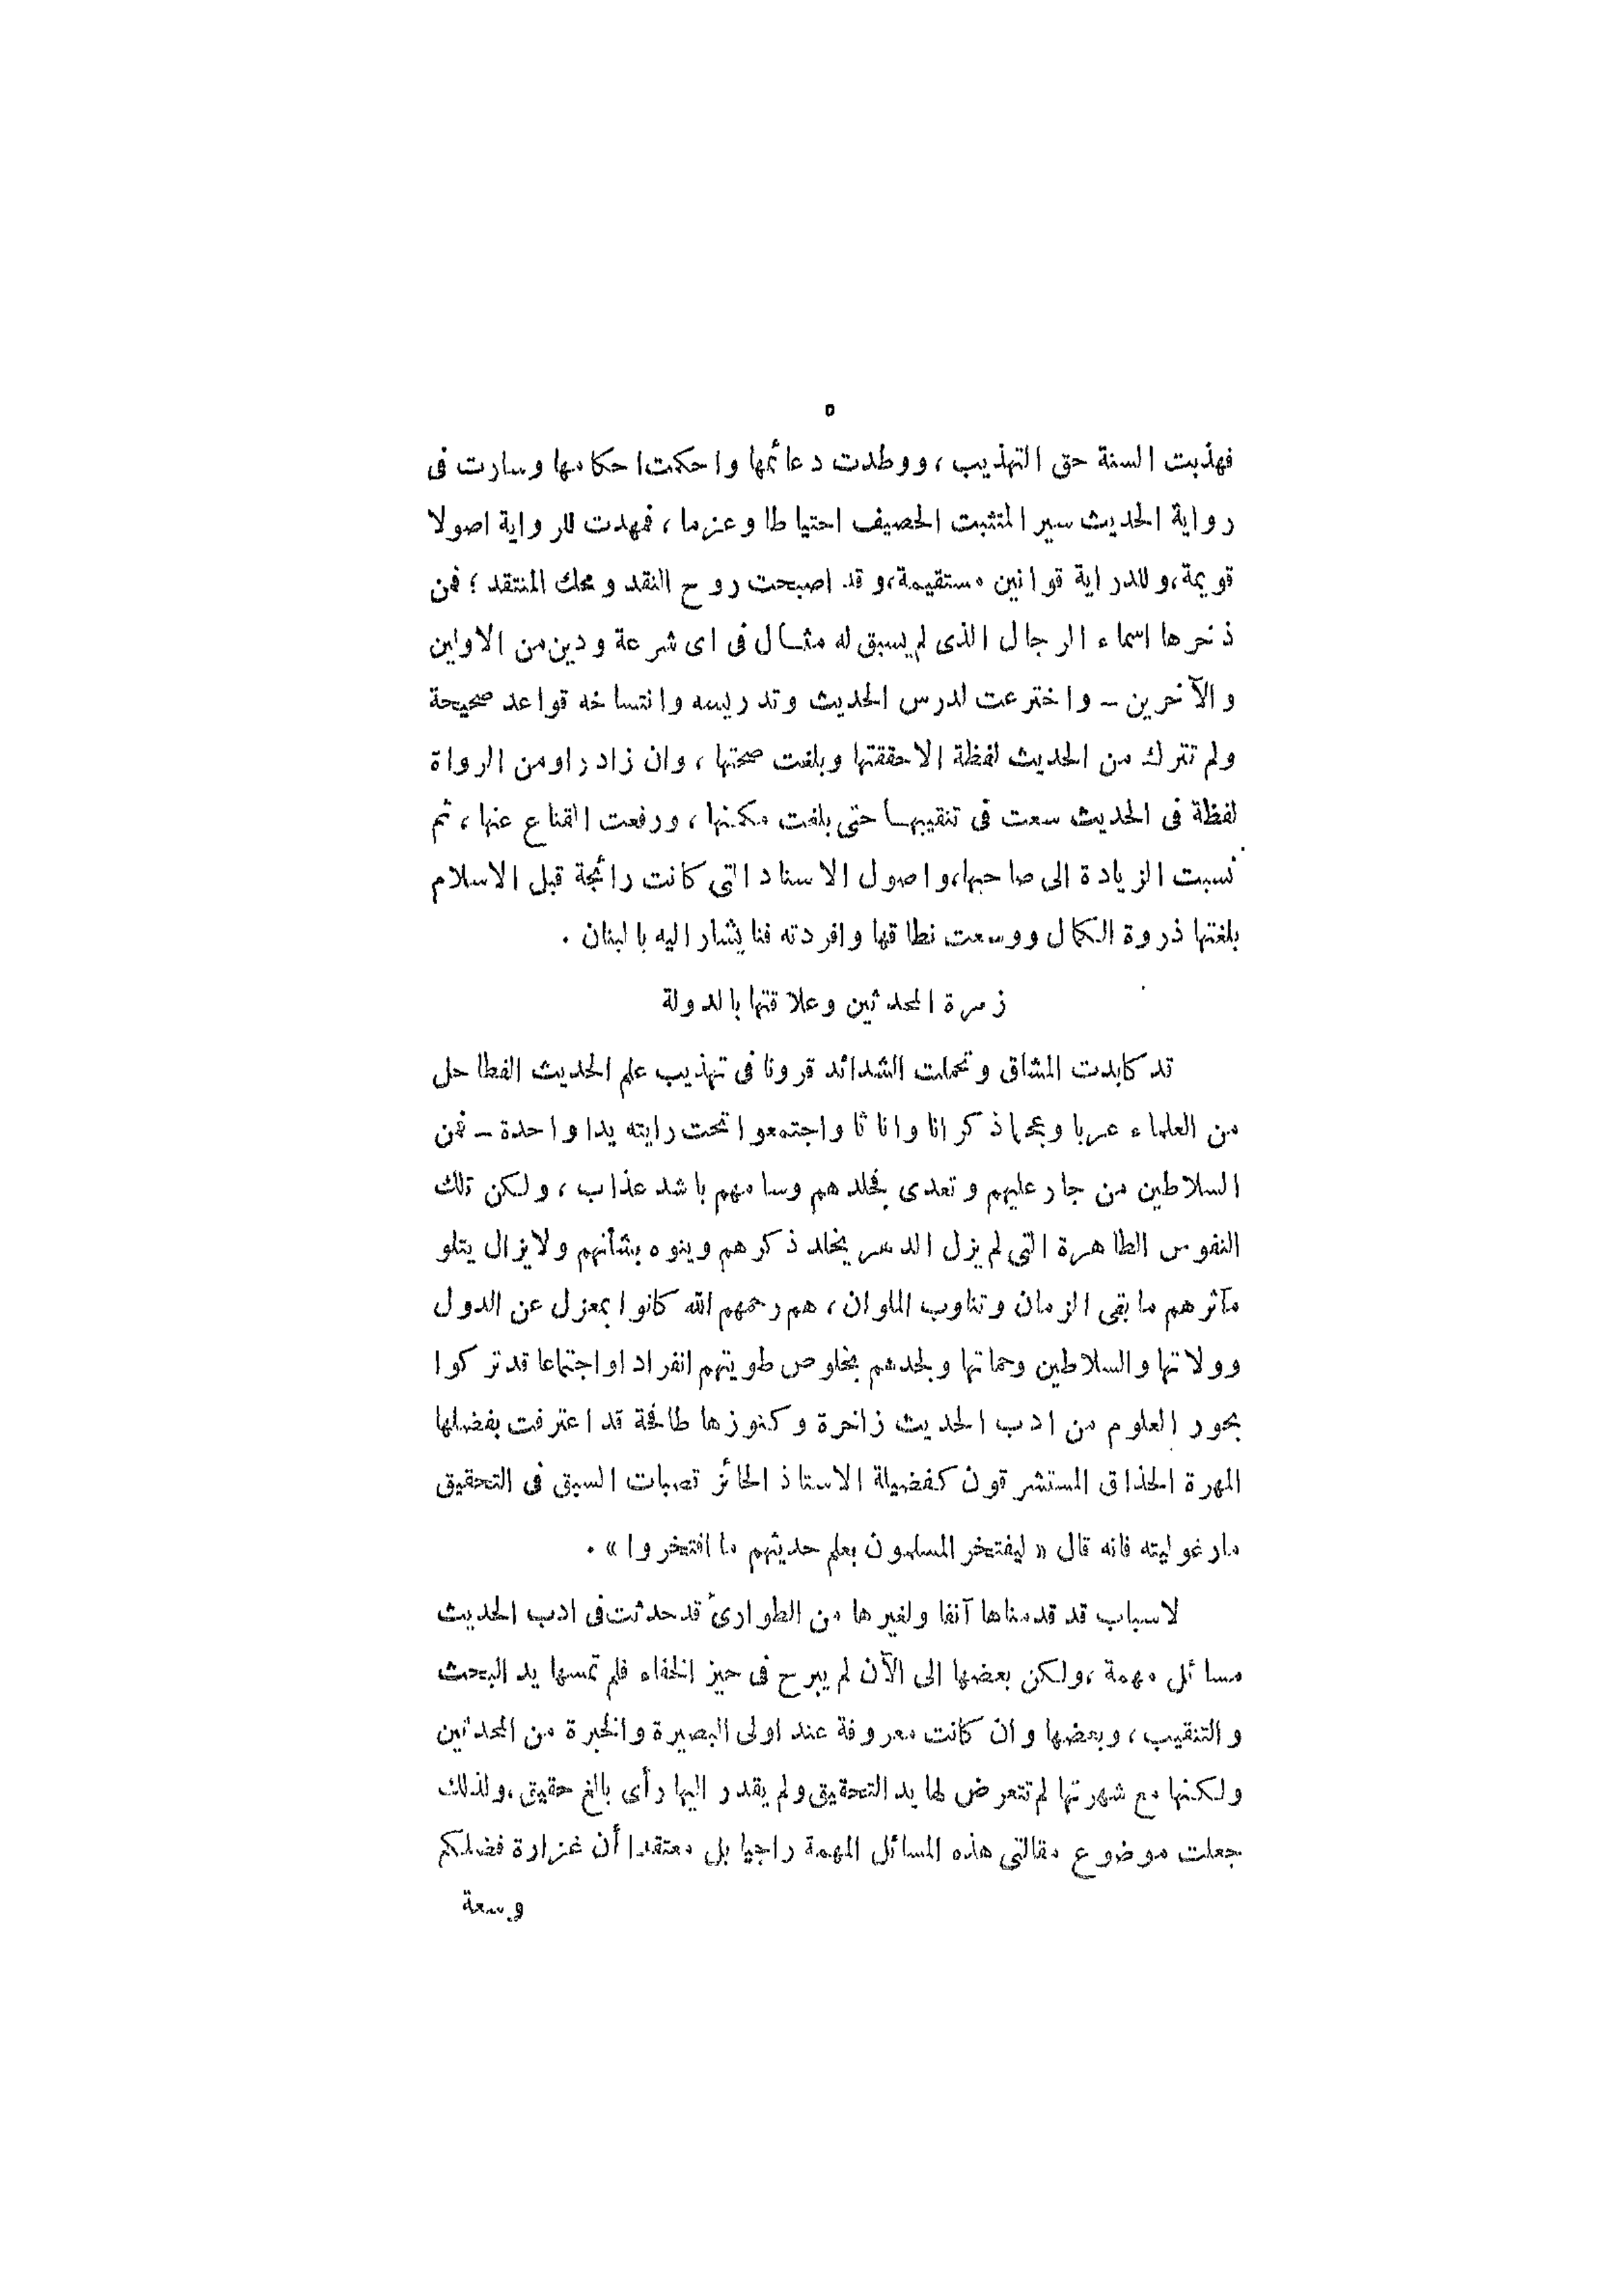 ٥
فهذبت السنة حق التهذيب ، ووطدت دعائمها واحكمت احكامها وسارت فى
رواية الحديث سير المتثبت الحصيف احتياطا وعزما ، فمهدت للرواية اصولا
قويمة ، وللدراية قوانين مستقيمة ، وقد اصبحت روح النقد ومحك المنتقد ؛ فمن
ذخرها اسماء الرجال الذى لم يسبق له مثال فى اى شرعة ودين من الاولين
والآخرين – واخترعت لدرس الحديث وتدريسه وانتساخه قواعد صحيحة
ولم تترك من الحديث لفظة الاحققتها وبلغت صحتها ، وان زاد راو من الرواة
لفظة فى الحديث سعت فى تنقيبها حتى بلغت مكنها ، ورفعت القناع عنها ، ثم
نسبت الزيادة الى صاحبها ، واصول الاسناد التى كانت رائجة قبل الاسلام
بلغتها ذروة الكمال ووسعت نطاقها وافردته فنا يشار اليه بالبنان .
زمرة المحدثين وعلاقتها بالدولة
قد كابدت المشاق وتحملت الشدائد قرونا فى تهذيب علم الحديث الفطاحل
من العلماء عربا وعجما ذكرانا واناثا واجتمعوا تحت رايته يدا واحدة – فمن
السلاطين من جار عليهم وتعدى فجلدهم وسامهم باشد عذاب ، ولكن تلك
النفوس الطاهرة التى لم يزل الدهر يخلد ذكرهم وينوه بشأنهم ولايزال يتلو
مآثرهم ما بقى الزمان وتناوب الملوان ، هم رحمهم الله كانوا بمعزل عن الدول
وولاتها والسلاطين وحماتها وبجدهم بخلوص طويتهم انفرادا واجتماعا قد تركوا
بحور العلوم من ادب الحديث زاخرة وكنوزها طافحة قد اعترفت بفضلها
المهرة الحذاق المستشرقون كفضيلة الاستاذ الحائز قصبات السبق فى التحقيق
مارغوليته فانه قال « ليفتخر المسلمون بعلم حديثهم ما افتخروا » .
لاسباب قد قدمناها آنفا ولغيرها من الطوارئ قد حدثت فى ادب الحديث
مسائل مهمة ، ولكن بعضها الى الآن لم يبرح فى حيز الخفاء فلم تمسها يد البحث
والتنقيب ، وبعضها وان كانت معروفة عند اولى البصيرة والخبرة من المحدثين
ولكنها مع شهرتها لم تتعرض لها يد التحقيق ولم يقدر اليها رأى بالغ حقيق ، ولذلك
جعلت موضوع مقالتى هذه المسائل المهمة راجيا بل معتقدا أن غزارة فضلكم
وسعة